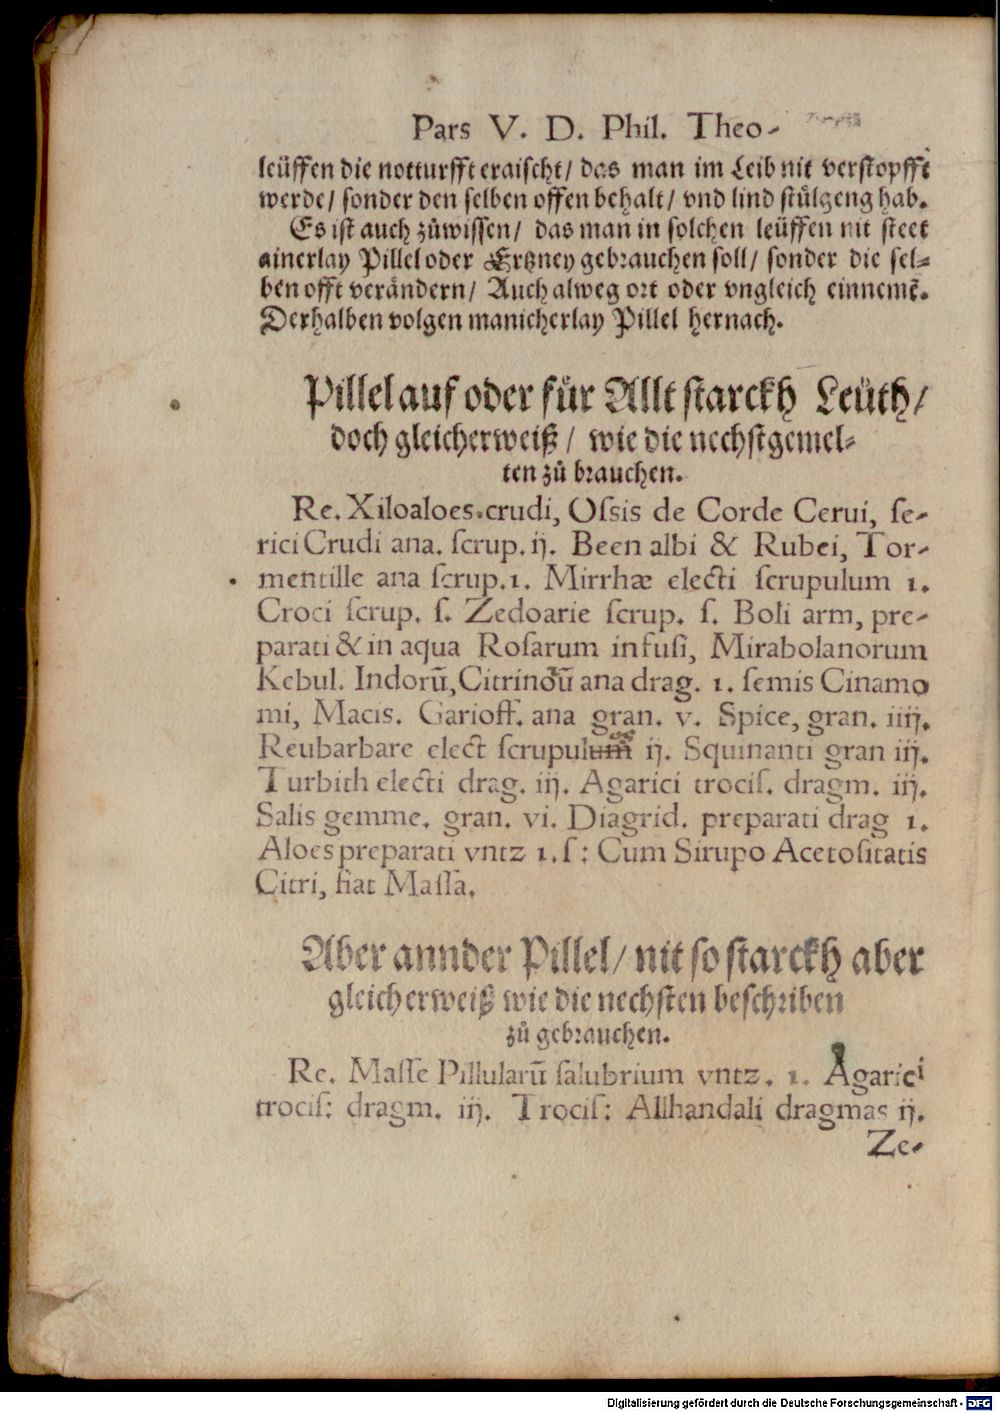 Pars V. D. Phil. Theo-
leüffen die notturfft eraischt/ das man im Leib nit verstopfft
werde/ sonder den selben offen behalt/ vnd lind stůlgeng hab.
Es ist auch zůwissen/ das man in solchen leüffen nit steet
ainerlay Pillel oder Ertzney gebrauchen soll/ sonder die sel-
ben offt verändern/ Auch alweg ort oder vngleich einnemẽ.
Derhalben volgen manicherlay Pillel hernach.
Pillel auf oder für Allt starckh Leüth/
doch gleicherweiß/ wie die nechstgemel-
ten zů brauchen.
Re. Xiloaloes.crudi, Ossis de Corde Cerui, se-
rici Crudi ana. scrup. ij. Been albi & Rubei, Tor-
mentille ana scrup. 1. Mirrhæ electi scrupulum 1.
Croci scrup. s. Zedoarie scrup. s. Boli arm, pre-
parati & in aqua Rosarum infusi, Mirabolanorum
Kebul. Indorũ, Citrinorũ ana drag. 1. semis Cinamo
mi, Macis. Garioff. ana gran. v. Spice, gran. iiij.
Reubarbare elect scrupulum ij. Squinanti gran iij.
Turbith electi drag. iij. Agarici trocis. dragm. iij.
Salis gemme. gran. vi. Diagrid. preparati drag 1.
Aloes preparati vntz 1. s: Cum Sirupo Acetositatis
Citri, fiat Massa.
Aber annder Pillel/ nit so starckh aber
gleicherweiß wie die nechsten beschriben
zů gebrauchen.
Re. Masse Pillularũ salubrium vntz. 1. Agarici
trocis: dragm. iij. Trocis: Allhandali dragmas ij.
Ze-
Digitalisierung gefördert durch die Deutsche Forschungsgemeinschaft - DFG